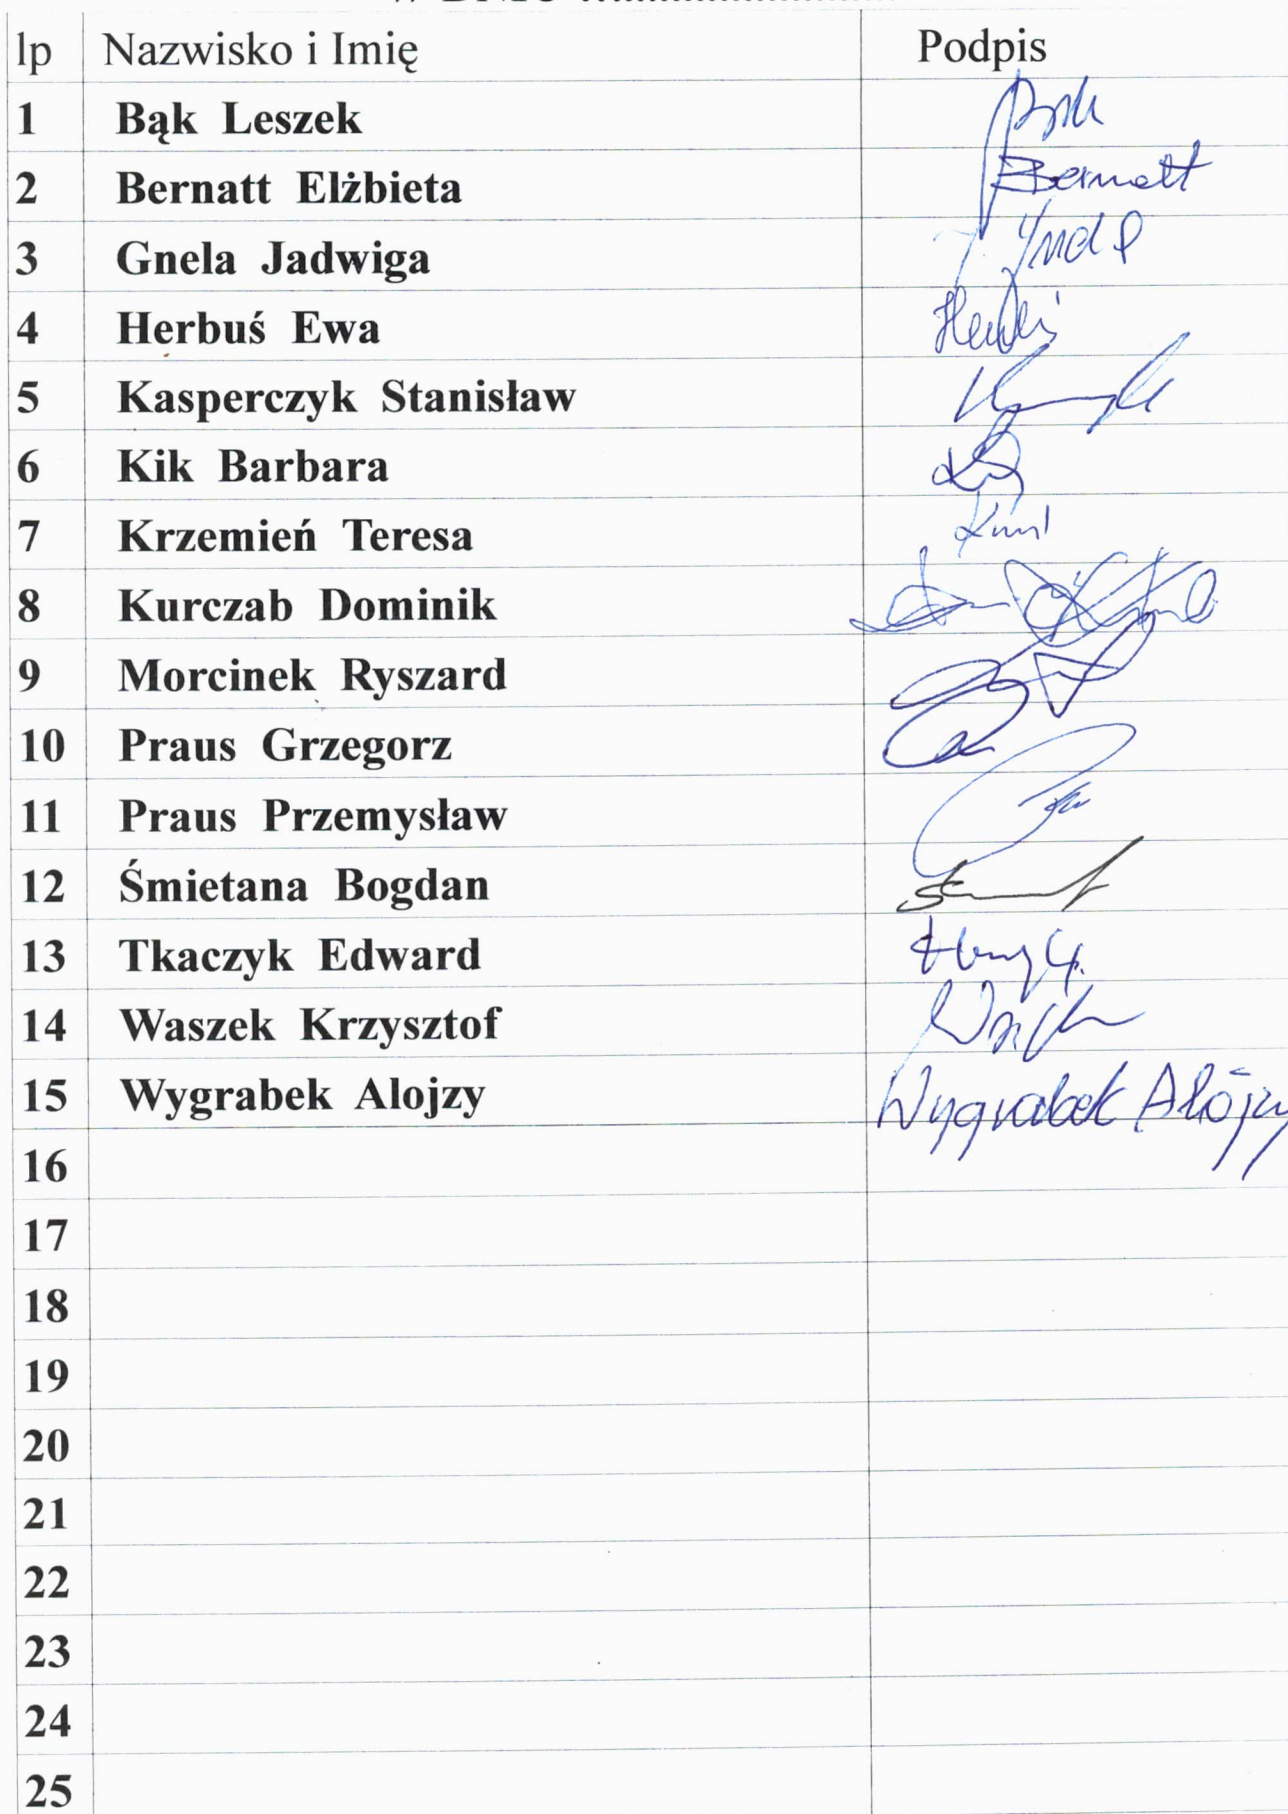 W DNIU
lp Nazwisko i Imię Podpis
1 Bąk Leszek
2 Bernatt Elżbieta Bernatt
3 Gnela Jadwiga
4 Herbuś Ewa
5 Kasperczyk Stanisław
6 Kik Barbara
7 Krzemień Teresa
8 Kurczab Dominik
9 Morcinek Ryszard
10 Praus Grzegorz
11 Praus Przemysław
12 Śmietana Bogdan
13 Tkaczyk Edward
14 Waszek Krzysztof
15 Wygrabek Alojzy Wygrabek Alojzy
16
17
18
19
20
21
22
23
24
25